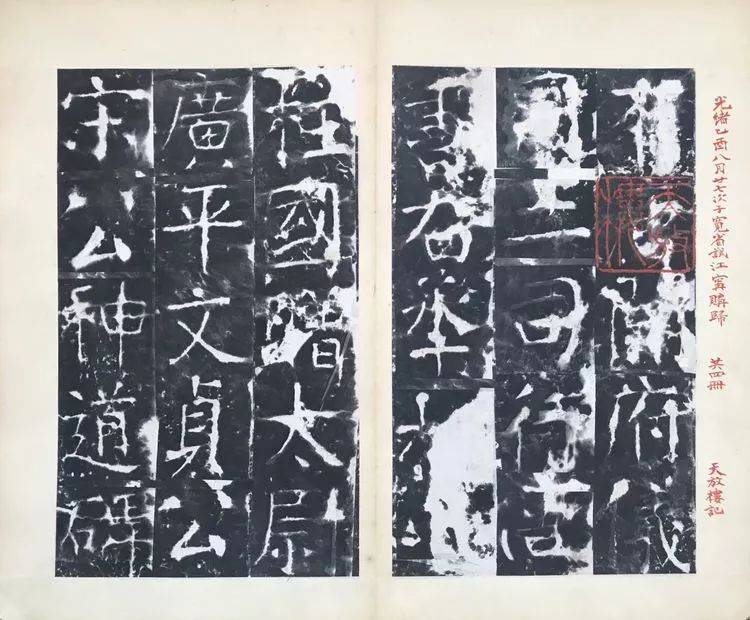 光緒乙酉八月廿七次子寬省試江寧購歸 共四冊 天放樓記
有開府儀
同三司行尚
書右丞
柱國贈太尉
廣平文貞公
宋公神道碑